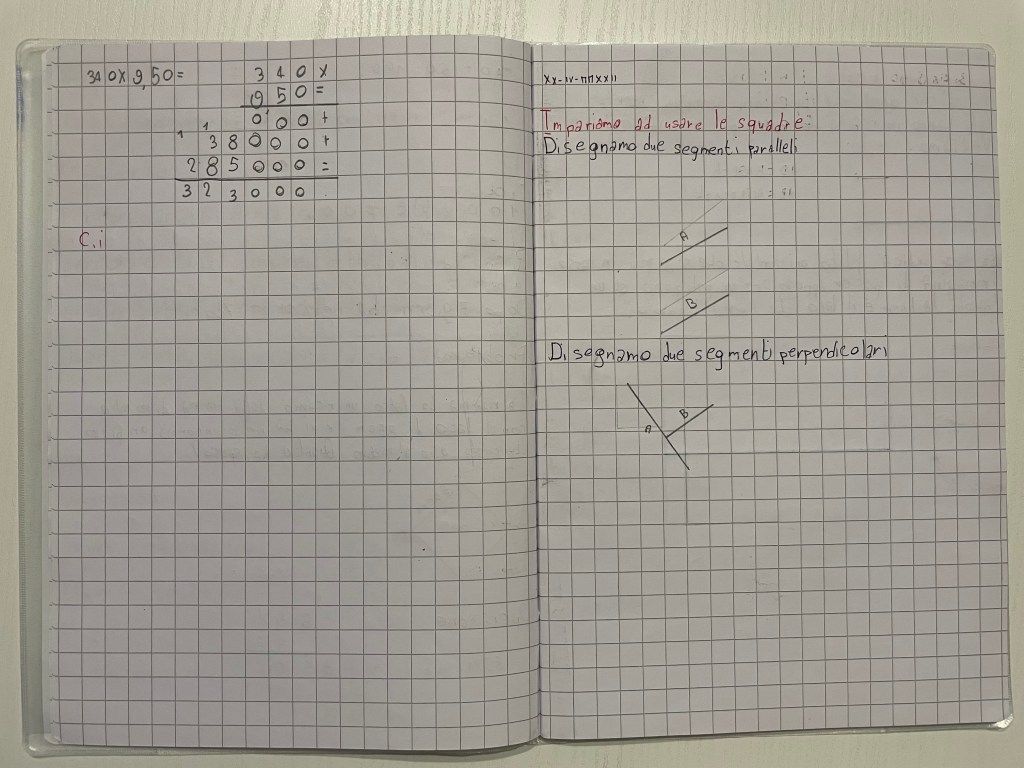 340x9,50=
340x
950=
000+
1 1
38000+
285000=
323000
C.i
XX-IV-MMXXII
Impariamo ad usare le squadre:
Disegnamo due segmenti paralleli
A
B
Disegnamo due segmenti perpendicolari
B
A